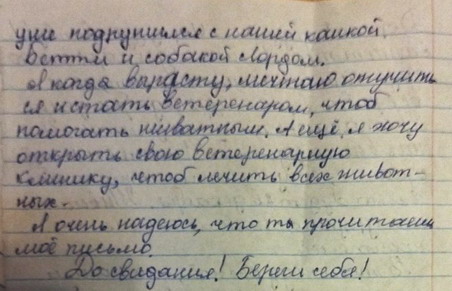 уже подружился с нашей кошкой
Бетти и собакой Лордом.
Я когда вырасту, мечтаю отучить
ся и стать ветеренаром, чтоб
помогать живатным. А ещё, я хочу
открыть свою ветеренарную
клинику, чтоб лечить всех живот-
ных.
Я очень надеюсь, что ты прочитаешь
моё письмо.
До свидания! Береги себя!